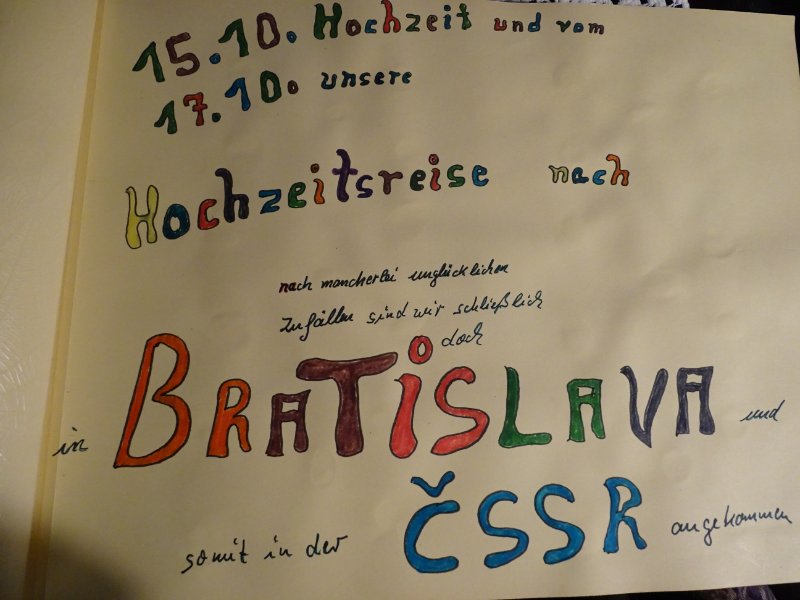 15.10. Hochzeit und vom
17.10. unsere
Hochzeitsreise nach
nach mancherlei unglücklichen
Zufällen sind wir schließlich
doch
in BRATiSLAVA und
somit in der ČSSR angekommen